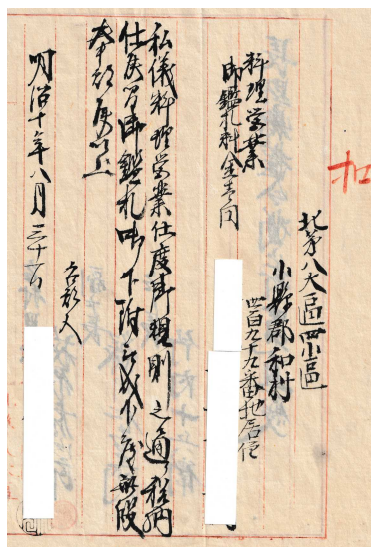 北第八大區四小區
小縣郡和村
四百九十九番地居住
料理営業
御鑑札料金壱円
私儀料理営業仕度御規則之通税納
仕度間御鑑札御下附被成下度此段
奉願候以上
右願人
明治十年八月三十一日